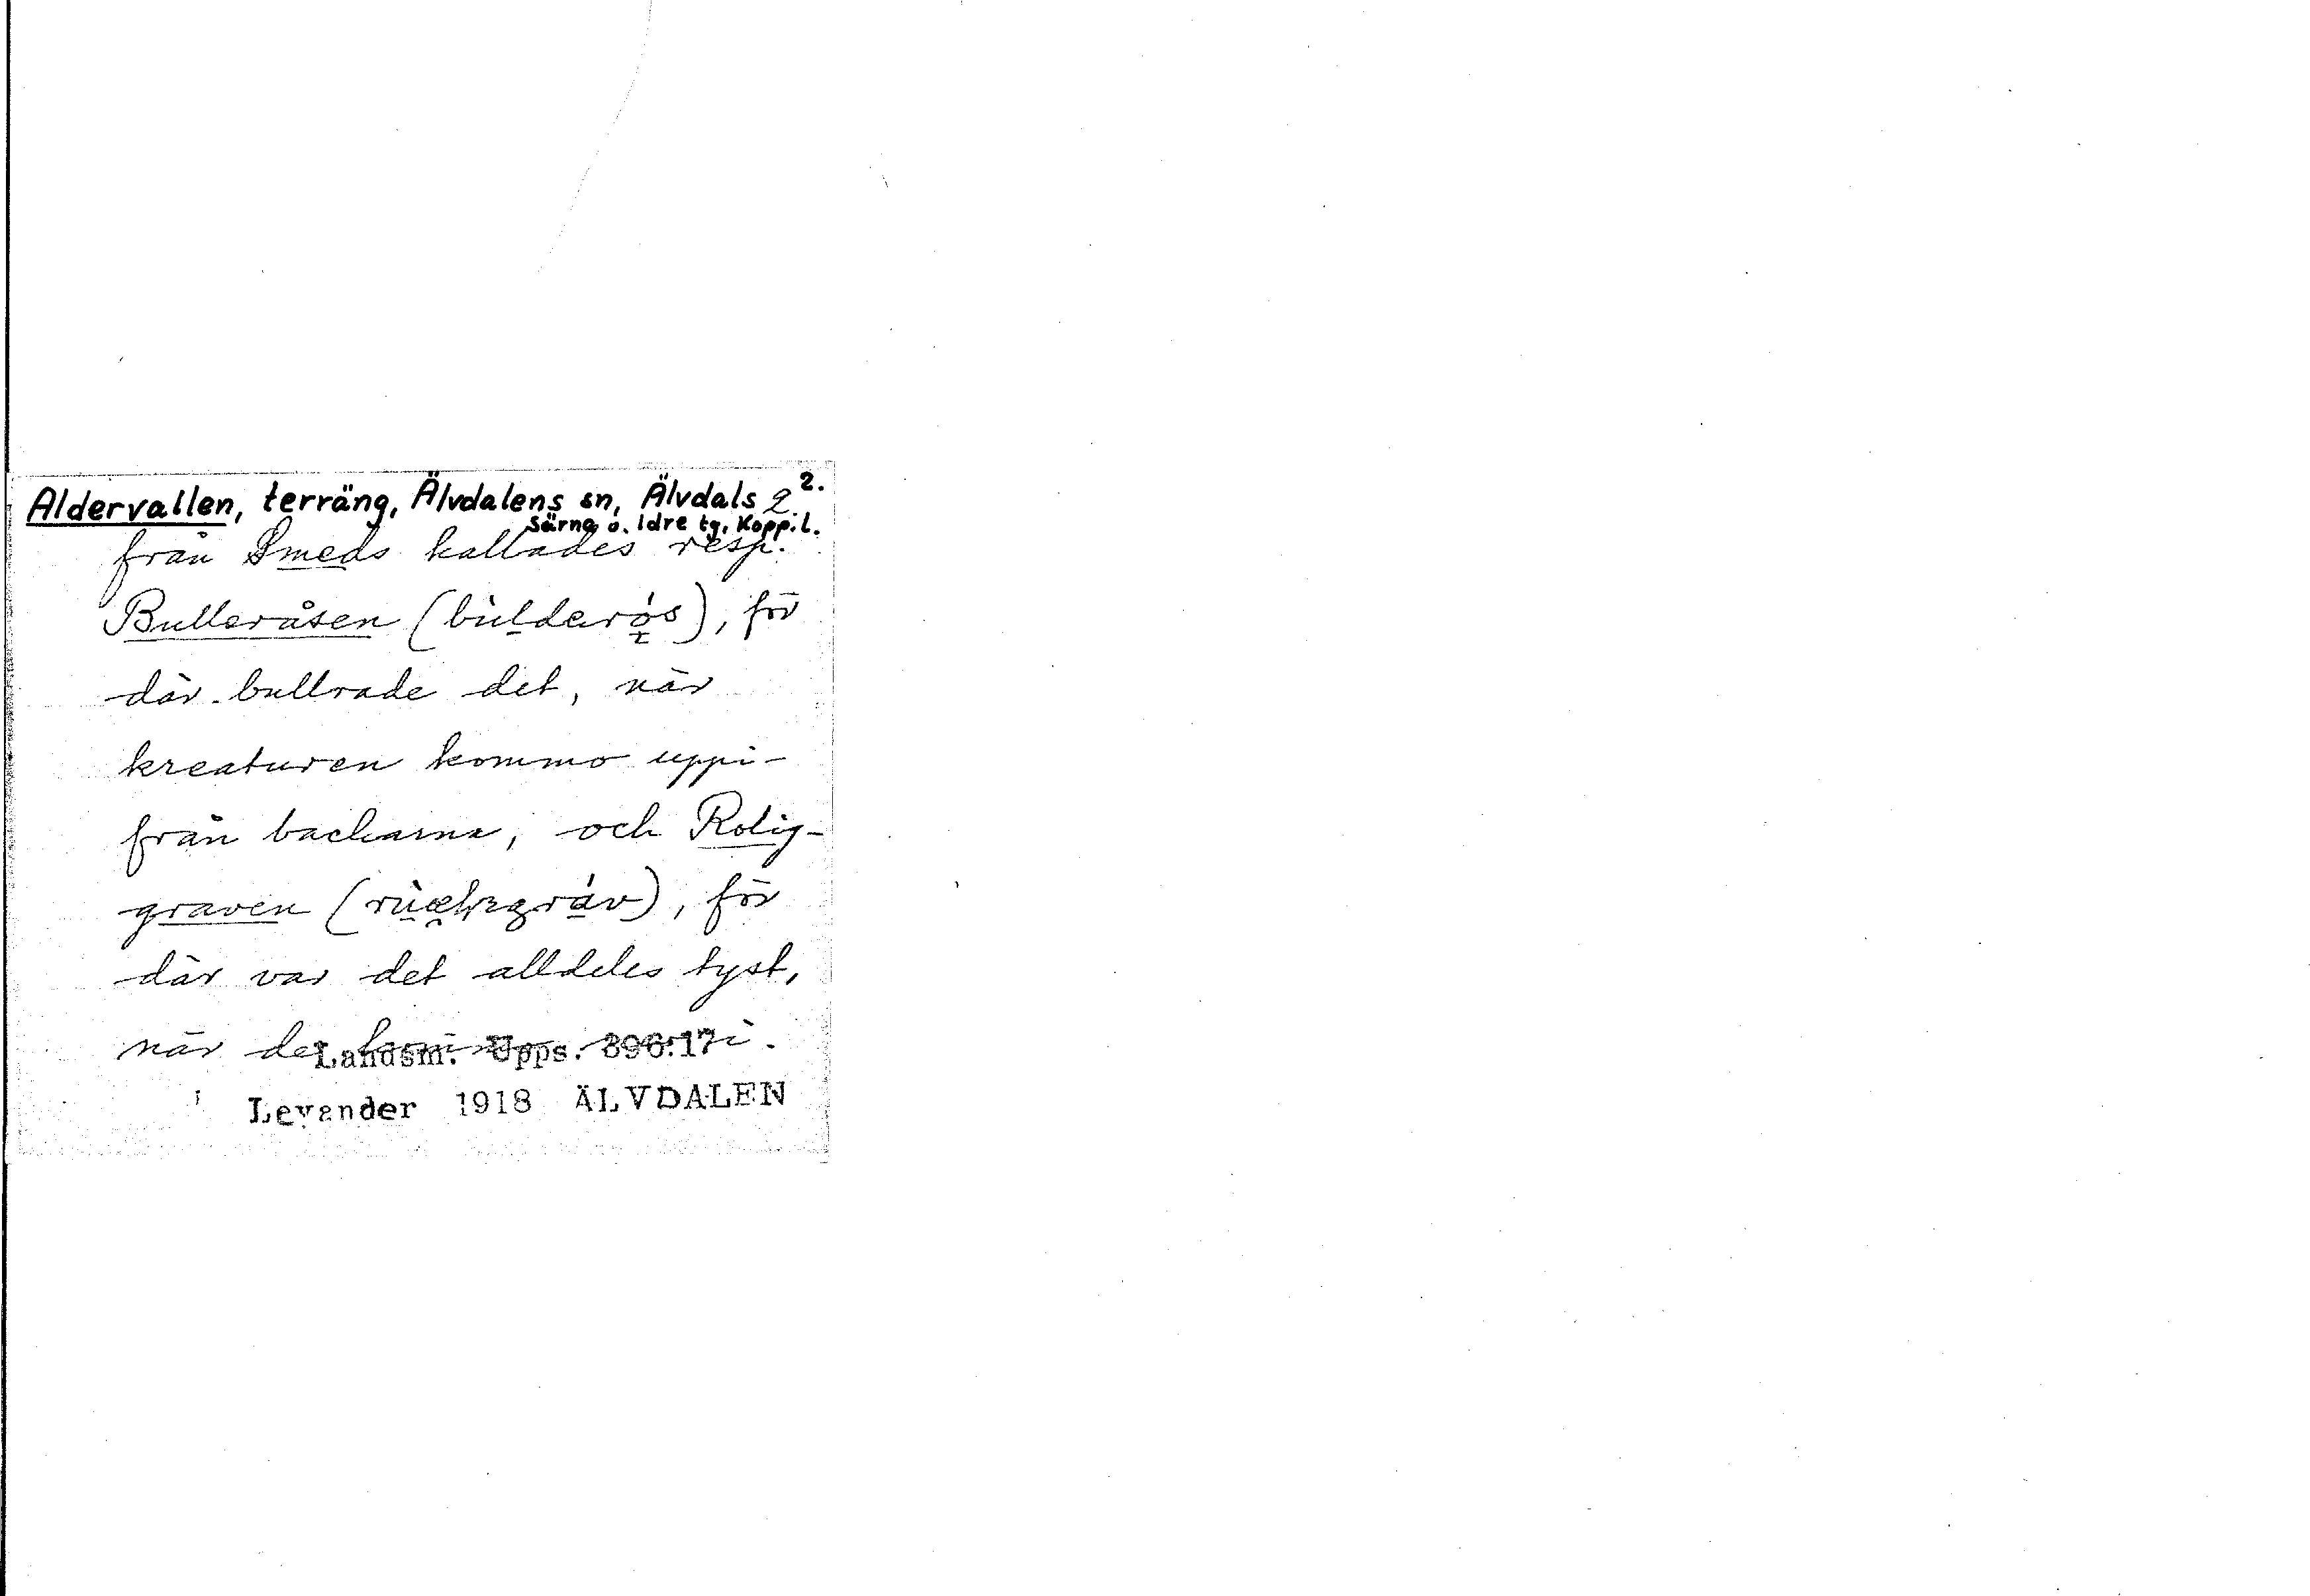 Aldervallen, terräng, Älvdalens sn, Älvdals 2 2.
Särna o. Idre tg, Kopp. l.
från Smeds kallades resp.
Bulleråsen (bùlderǫ́s), för
där bullrade det, när
kreaturen kommo uppi-
från backarna, och Rolig-
graven (), för
där var det alldeles tyst,
när de i.
Landsm. Upps. 396:17
Levander 1918 ÄLVDALEN